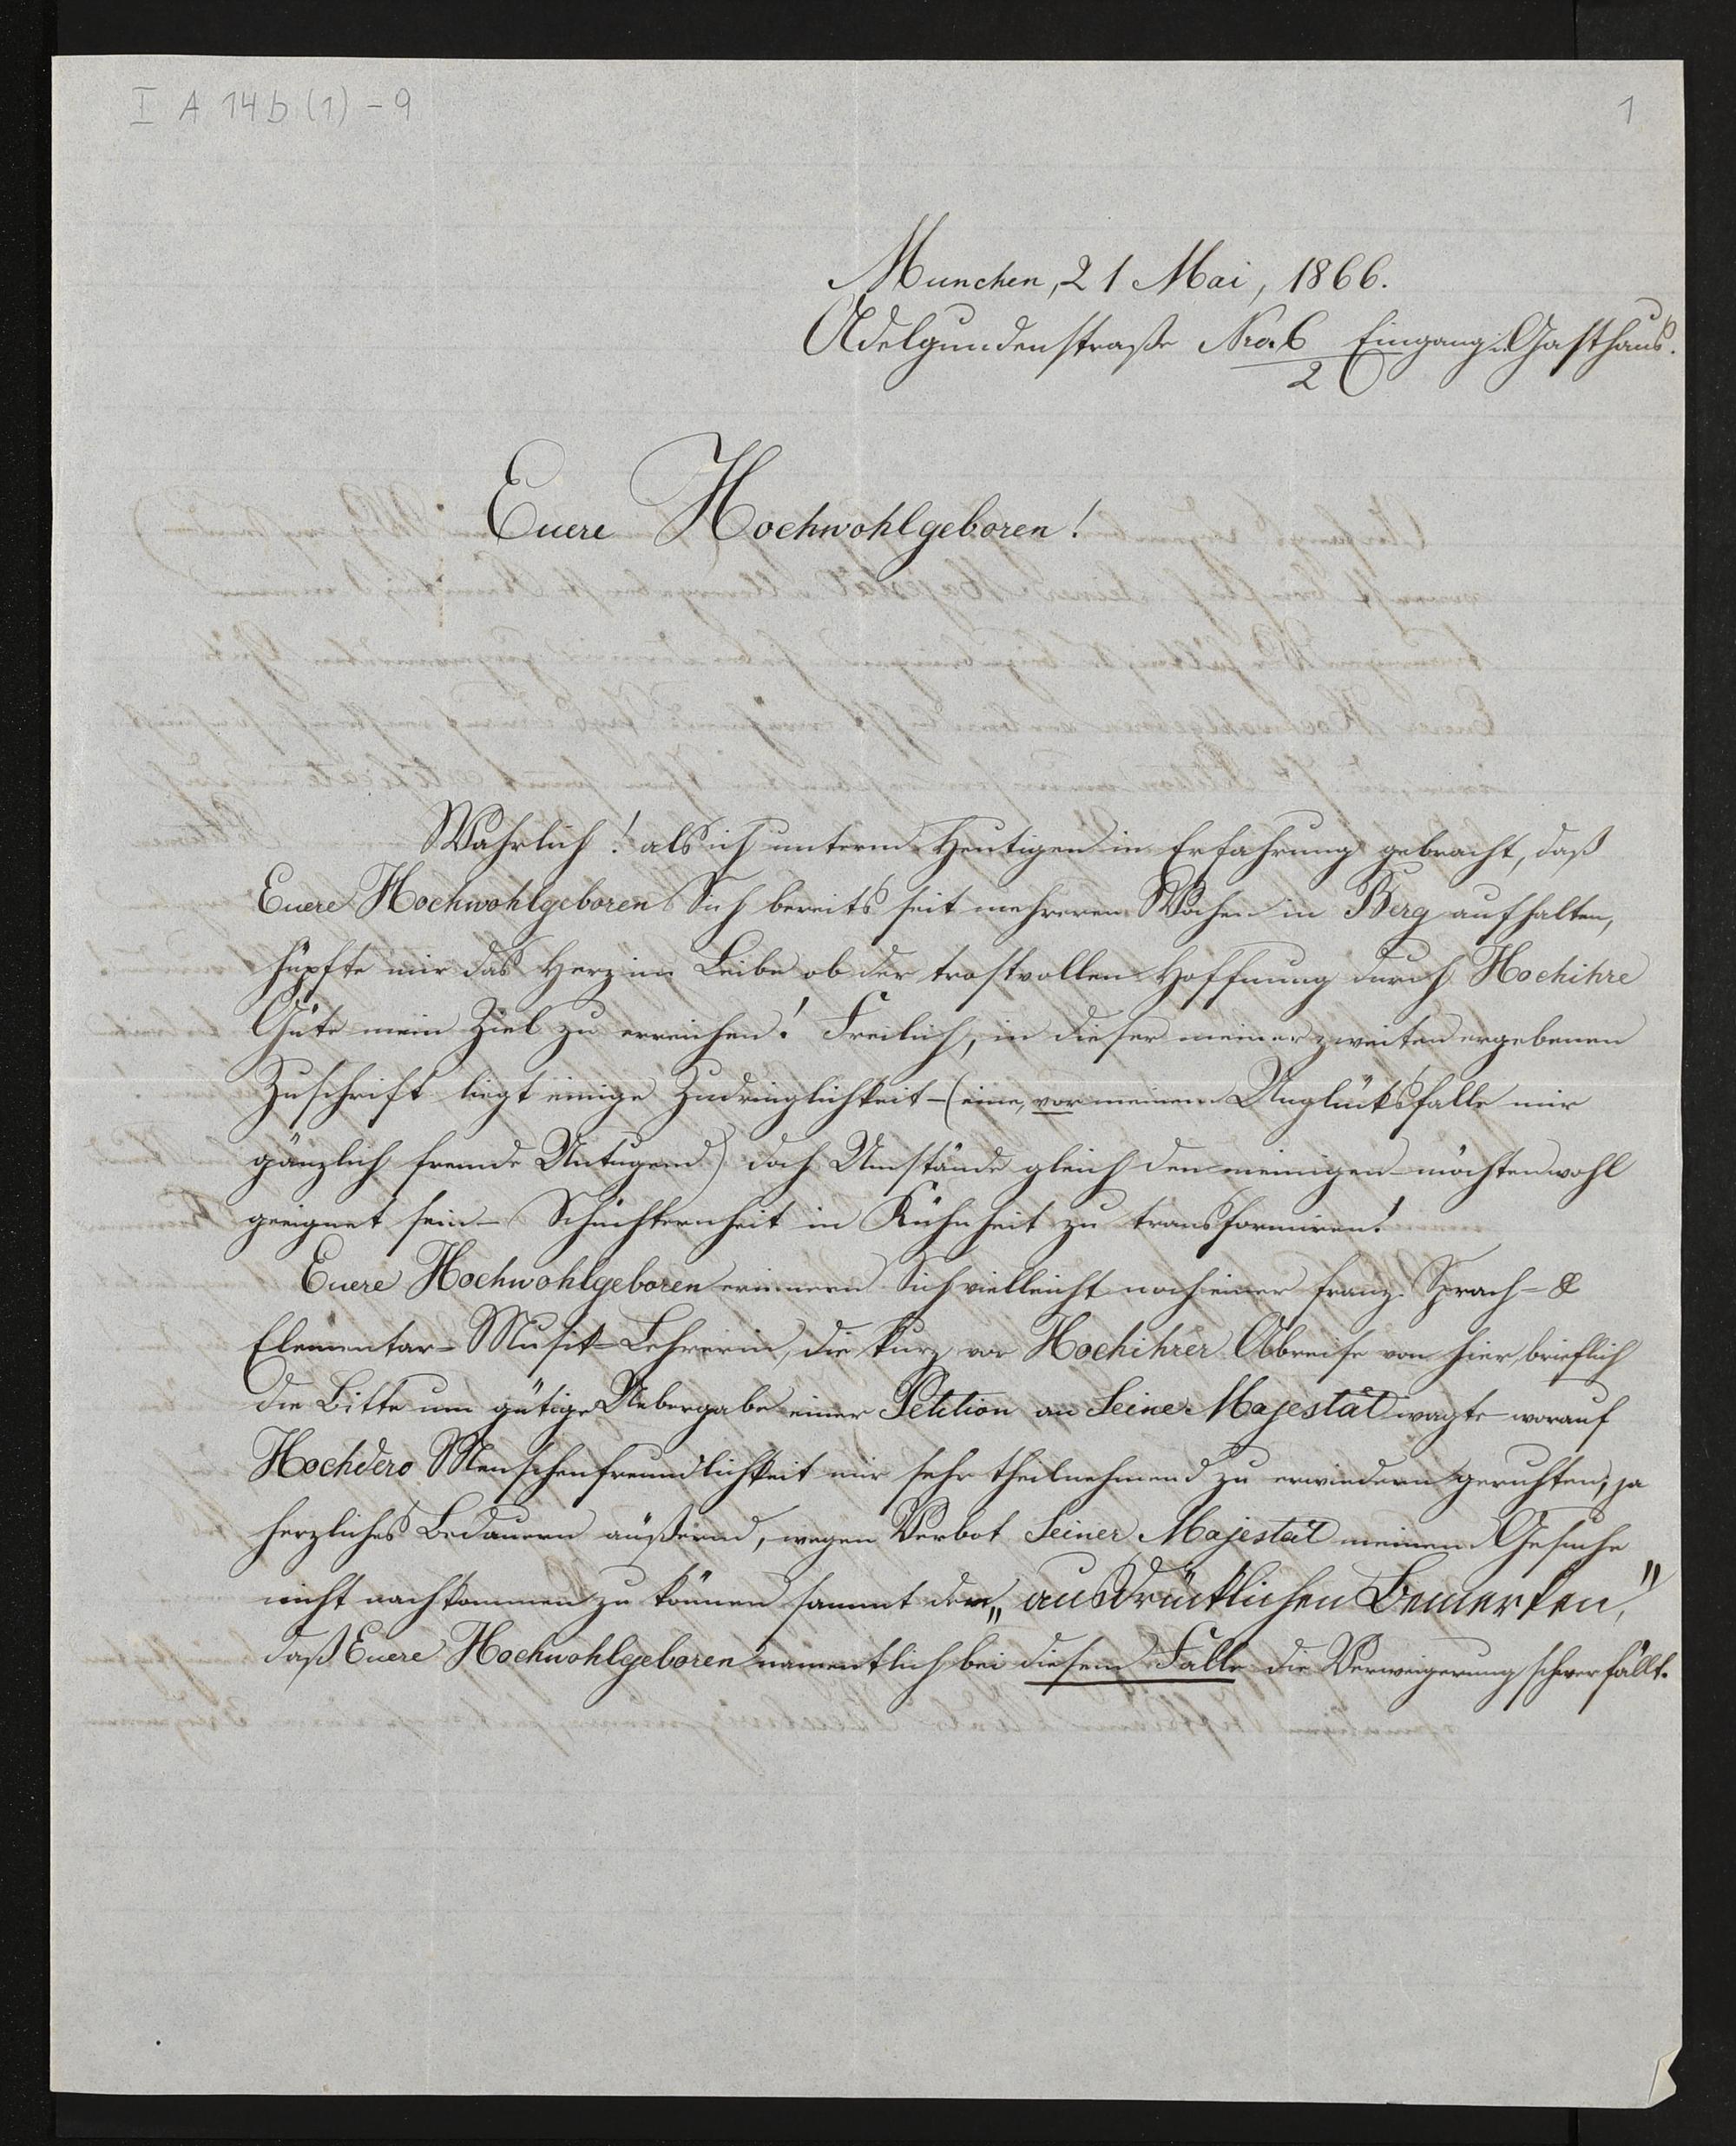 I A 14b (1) - 9
1
Munchen, 21 Mai, 1866.
Adelgundenstraße Nro. 6 Eingang i. Gasthaus.
2
Euere Hochwohlgeboren!
Wahrlich! als ich unterm Heutigen in Erfahrung gebracht, daß
Euere Hochwohlgeboren Sich bereits seit mehreren Wochen in Berg aufhalten,
hüpfte mir das Herz im Leibe ob der trostvollen Hoffnung durch Hochihre
Güte mein Ziel zu erreichen! Freilich, in dieser meiner zweiten ergebenen
Zuschrift liegt einige Zudringlichkeit – (eine, vor meinem Unglücksfalle mir
gänzlich fremde Untugend) doch Umstände gleich den meinigen möchten wohl
geeignet sein – Schüchternheit in Kühnheit zu transformiren!
Euere Hochwohlgeboren erinnern Sich vielleicht noch einer franz. Sprach- &
Elementar-Musik-Lehrerin, die kurz vor Hochihrer Abreise von hier, brieflich
die Bitte um gütige Uebergabe einer Petition an Seine Majestät wagte – worauf
Hochdero Menschenfreundlichkeit mir sehr theilnehmend zu erwiedern geruhten, ja
herzliches Bedauern äußernd, wegen Verbot Seiner Majestät meinem Gesuche
nicht nachkommen zu können sammt dem „ausdrücklichen Bemerken,"
daß Euere Hochwohlgeboren namentlich bei diesem Falle die Verweigerung schwer fällt.